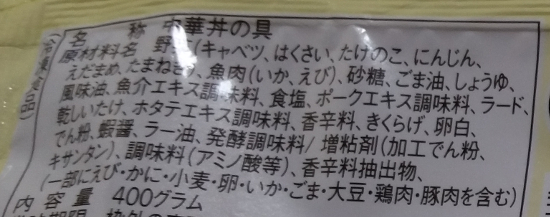 名 称 中華丼の具
原材料名 野菜(キャベツ、はくさい、たけのこ、にんじん、
えだまめ、たまねぎ)、魚肉(いか、えび)、砂糖、ごま油、しょうゆ、
風味油、魚介エキス調味料、食塩、ポークエキス調味料、ラード、
乾しいたけ、ホタテエキス調味料、香辛料、きくらげ、卵白、
でん粉、蝦醤、ラー油、発酵調味料/増粘剤(加工でん粉、
キサンタン)、調味料(アミノ酸等)、香辛料抽出物、
(一部にえび・かに・小麦・卵・いか・ごま・大豆・鶏肉・豚肉を含む)
内 容 量 400グラム